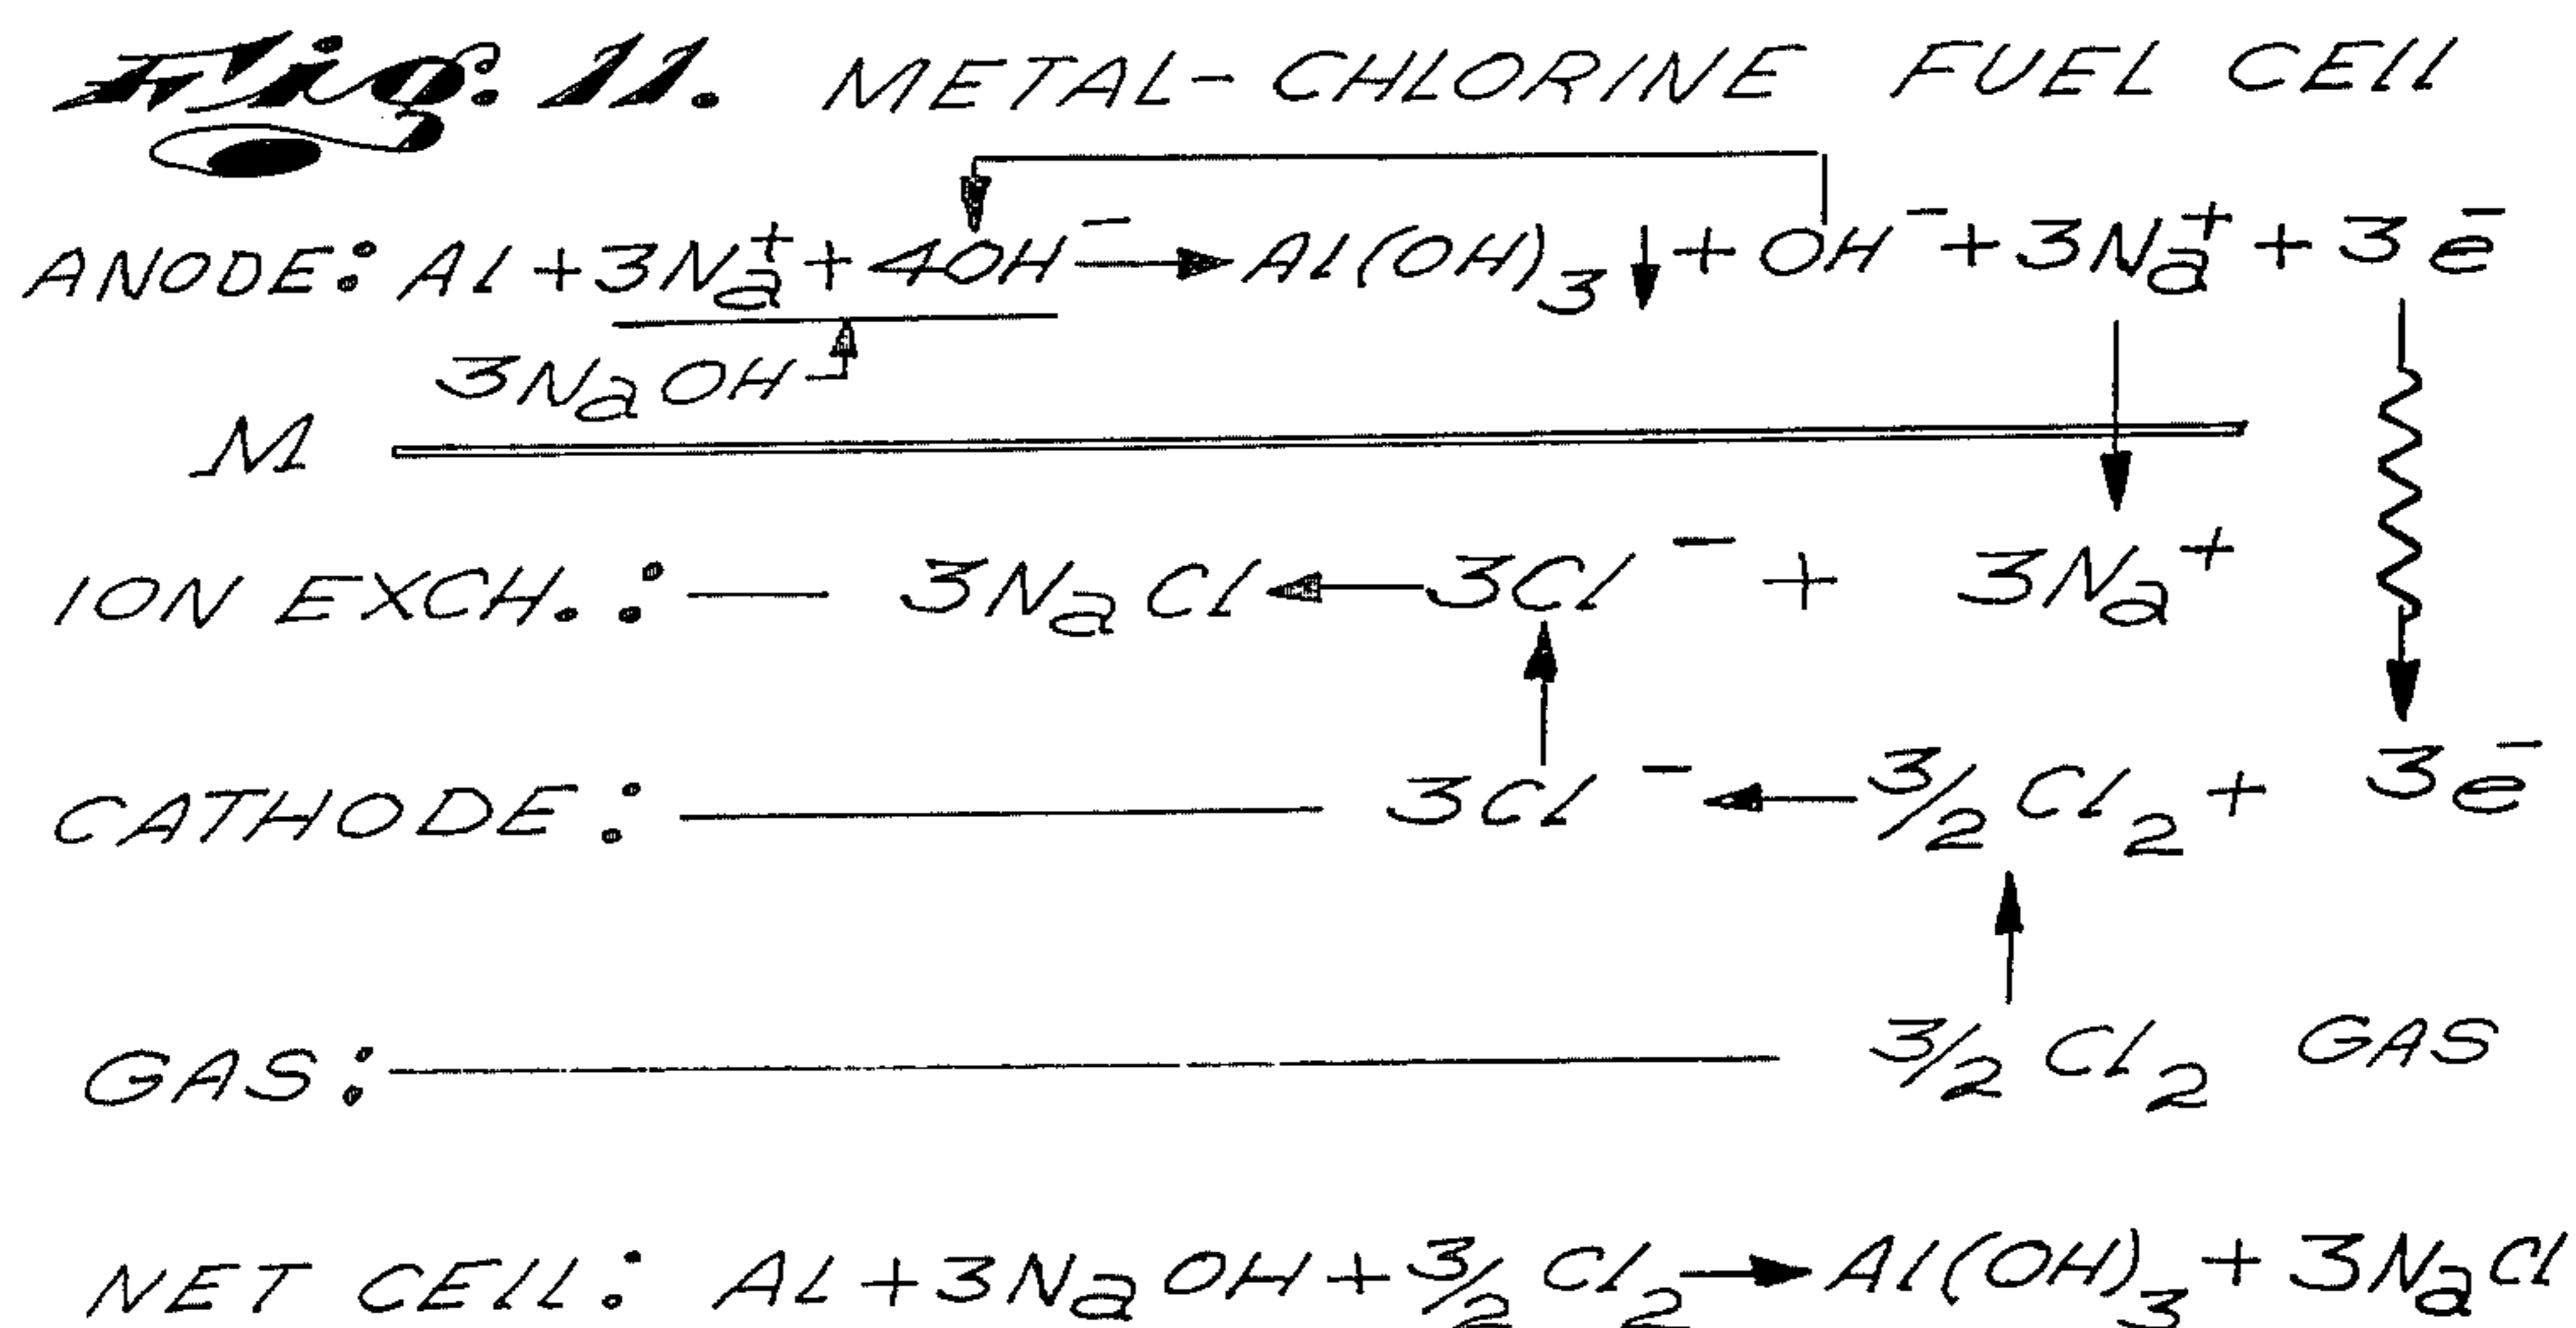 Fig. 11. METAL-CHLORINE FUEL CELL
ANODE: Al + 3Na⁺ + 4OH⁻ → Al(OH)₃ ↓ + OH⁻ + 3Na⁺ + 3e⁻
3NaOH
M
ION EXCH.: — 3NaCl ← 3Cl⁻ + 3Na⁺
CATHODE: — 3Cl⁻ ← 3/2 Cl₂ + 3e⁻
GAS: — 3/2 Cl₂ GAS
NET CELL: AL + 3NaOH + 3/2 Cl₂ → Al(OH)₃ + 3NaCl